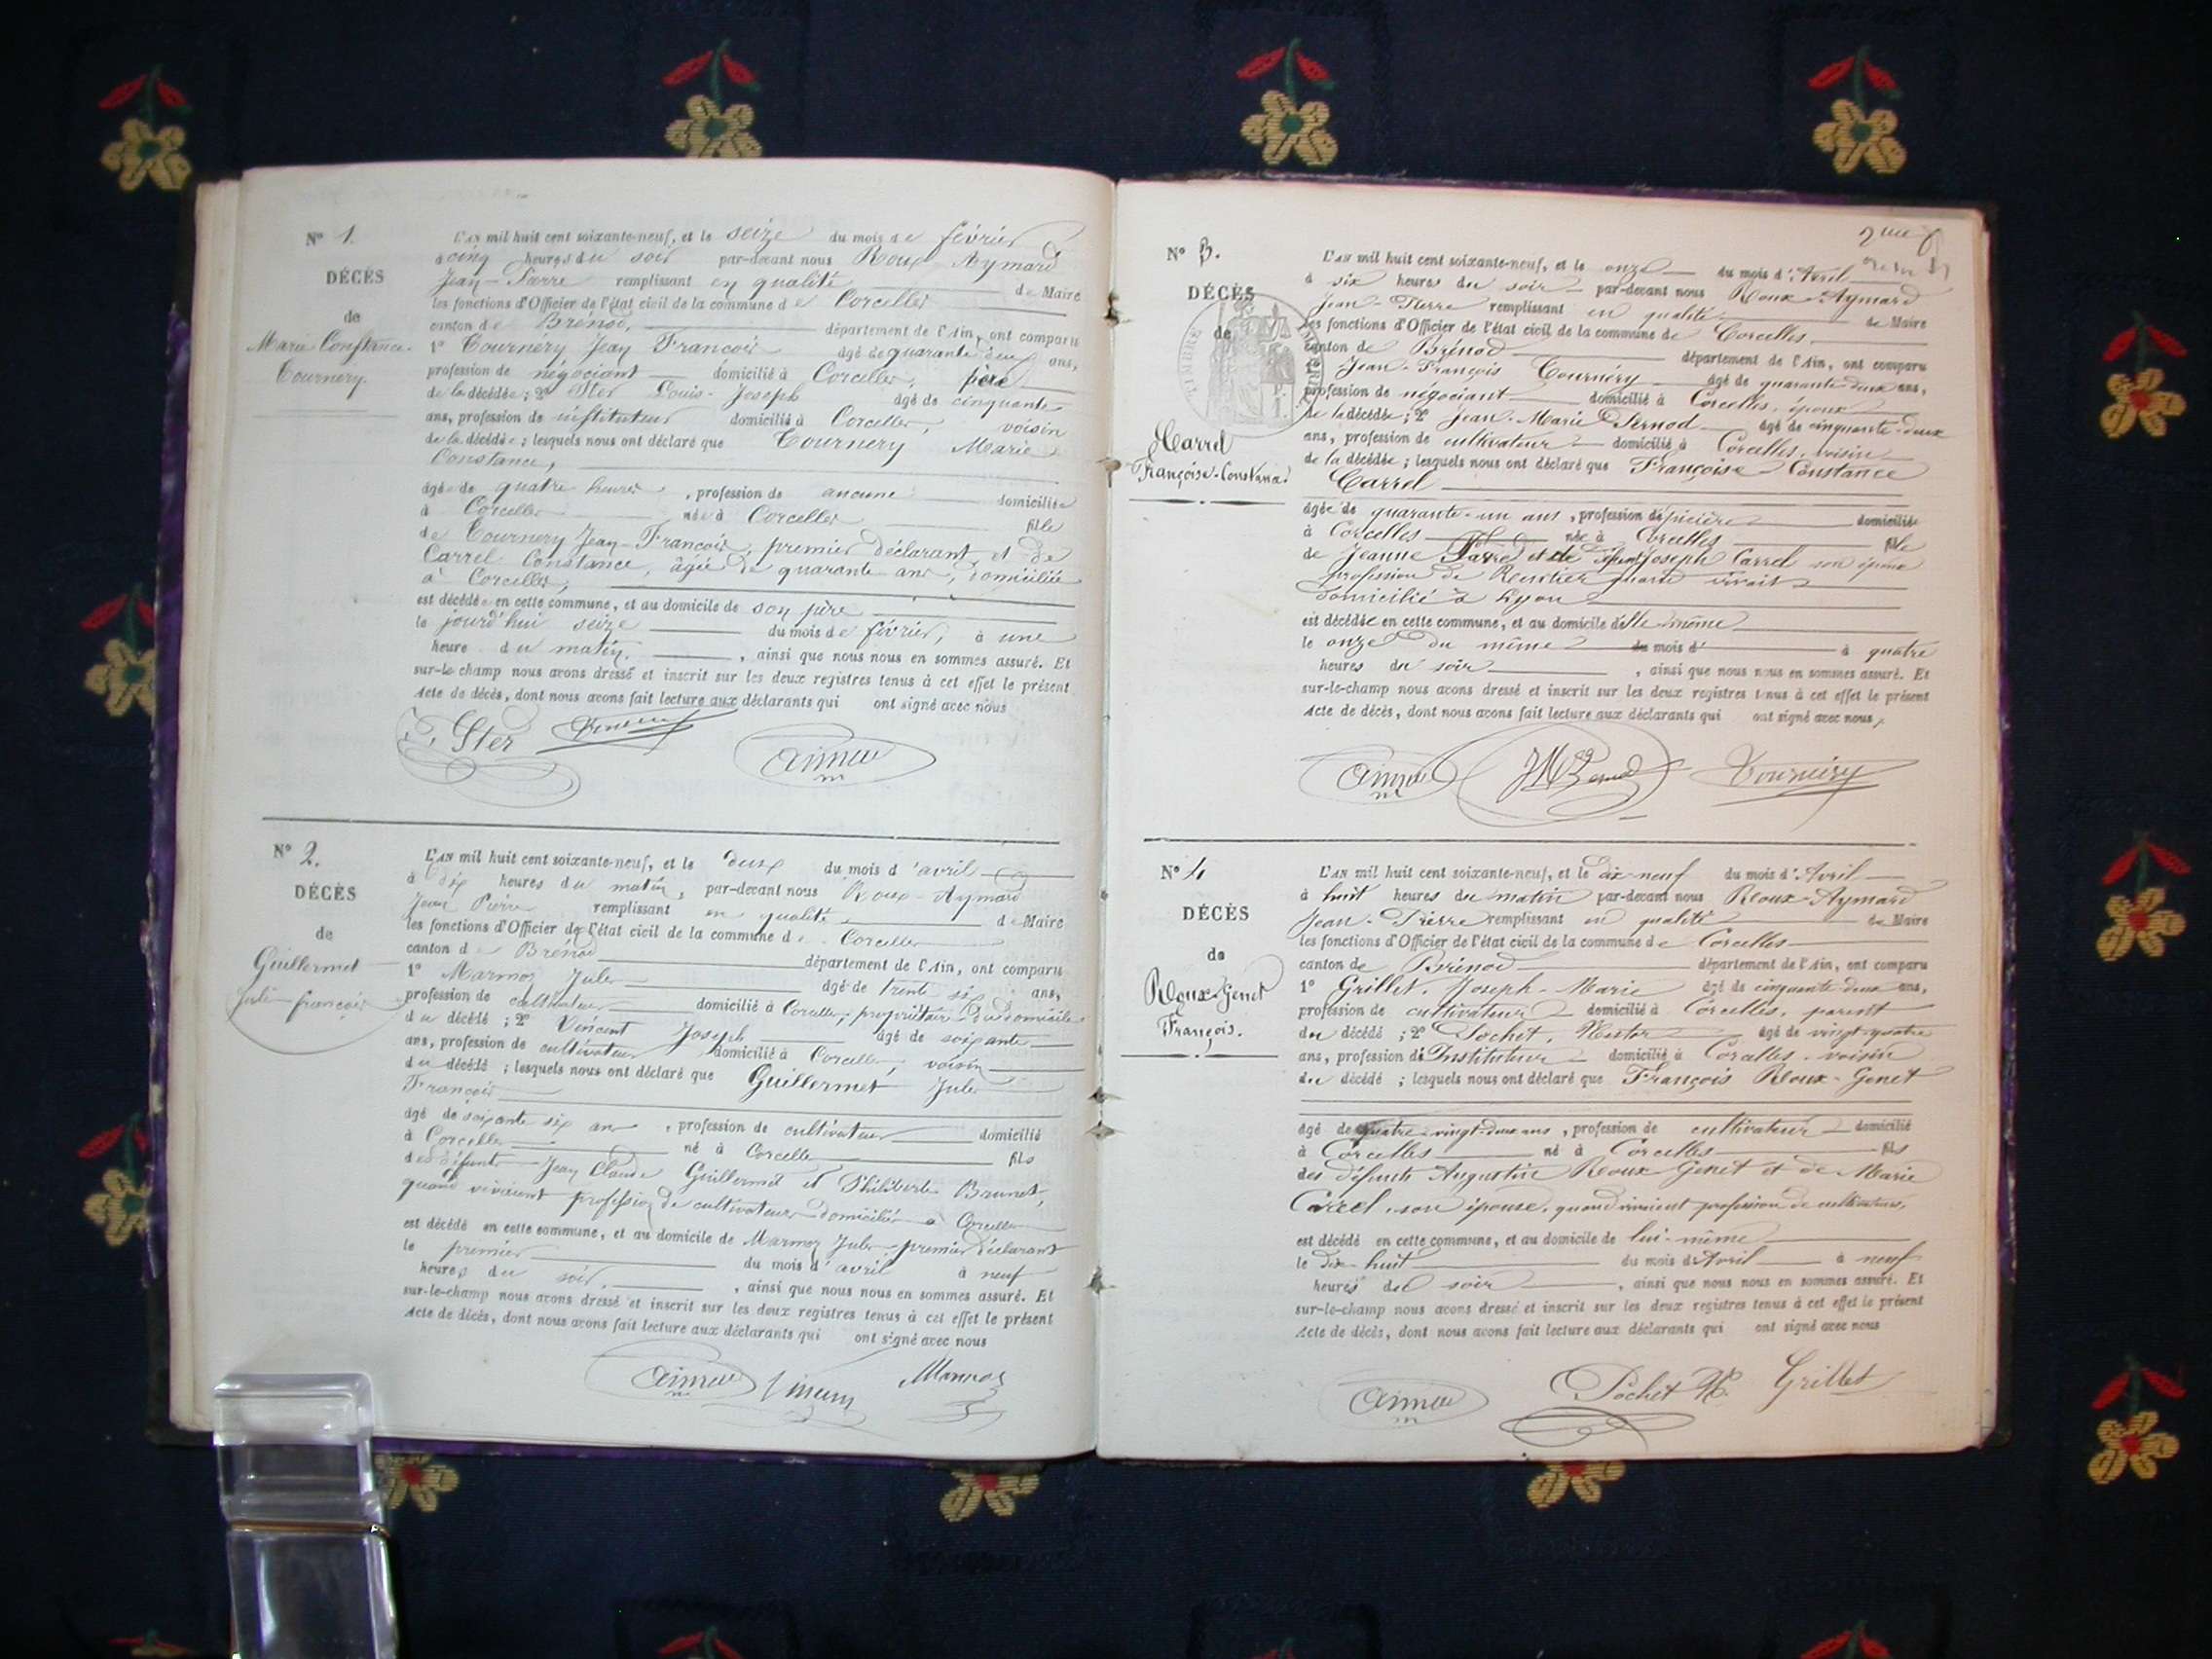 N° 1.
DÉCÈS
de
Marie Constance
Tournery.
L'AN mil huit cent soixante-neuf, et le seize du mois de février
à cinq heures du soir par-devant nous Roux-Aymard
Jean-Pierre remplissant en qualité de Maire
les fonctions d'Officier de l'état civil de la commune de Corcelles
canton de Brénod, département de l'Ain, ont comparu
1° Tournery Jean François âgé de quarante deux ans,
profession de négociant domicilié à Corcelles, père
de la décédée; 2° Ster Louis-Joseph âgé de cinquante
ans, profession de instituteur domicilié à Corcelles, voisin
de la décédée; lesquels nous ont déclaré que Tournery Marie
Constance,
âgée de quatre heures, profession de aucune domiciliée
à Corcelles née à Corcelles fille
de Tournery Jean-François, premier déclarant, et de
Carrel Constance, âgée de quarante ans, domiciliée
à Corcelles,
est décédée en cette commune, et au domicile de son père
le jourd'hui seize du mois de février, à une
heure du matin, ainsi que nous nous en sommes assuré. Et
sur-le-champ nous avons dressé et inscrit sur les deux registres tenus à cet effet le présent
Acte de décès, dont nous avons fait lecture aux déclarants qui ont signé avec nous
Ster
N° 2.
DÉCÈS
de
Guillermet
Jules françois
L'AN mil huit cent soixante-neuf, et le deux du mois d'avril
à dix heures du matin, par-devant nous Roux-Aymard
Jean Pierre remplissant en qualité de Maire
les fonctions d'Officier de l'état civil de la commune de Corcelles
canton de Brénod département de l'Ain, ont comparu
1° Marmoz Jules âgé de trente six ans,
profession de cultivateur domicilié à Corcelles, propriétaire du domicile
du décédé; 2° Vincent Joseph âgé de soixante
ans, profession de cultivateur domicilié à Corcelles, voisin
du décédé; lesquels nous ont déclaré que Guillermet Jules
François
âgé de soixante six ans, profession de cultivateur domicilié
à Corcelles né à Corcelles fils
des défunts Jean Claude Guillermet et Philiberte Brunet,
quand vivaient profession de cultivateurs domiciliés à Corcelles
est décédé en cette commune, et au domicile de Marmoz Jules, premier déclarant
le premier du mois d'avril à neuf
heures du soir, ainsi que nous nous en sommes assuré. Et
sur-le-champ nous avons dressé et inscrit sur les deux registres tenus à cet effet le présent
Acte de décès, dont nous avons fait lecture aux déclarants qui ont signé avec nous
Marmoz
N° 3.
DÉCÈS
de
TIMBRE
Carrel
Françoise-Constance
L'AN mil huit cent soixante-neuf, et le onze du mois d'Avril
à six heures du soir par-devant nous Roux-Aymard
Jean-Pierre remplissant en qualité de Maire
les fonctions d'Officier de l'état civil de la commune de Corcelles
canton de Brénod département de l'Ain, ont comparu
1° Jean-François Tournéry âgé de quarante deux ans,
profession de négociant domicilié à Corcelles, époux
de la décédée; 2° Jean-Marie Pernod âgé de cinquante-deux
ans, profession de cultivateur domicilié à Corcelles, voisin
de la décédée; lesquels nous ont déclaré que Françoise-Constance
Carrel
âgée de quarante-un ans, profession d'épicière domiciliée
à Corcelles née à Corcelles fille
de Jeanne et de défunt Joseph Carrel son époux
profession de Rentier quand vivait
domicilié à Lyon
est décédée en cette commune, et au domicile d'elle-même
le onze du même du mois d' à quatre
heures du soir, ainsi que nous nous en sommes assuré. Et
sur-le-champ nous avons dressé et inscrit sur les deux registres tenus à cet effet le présent
Acte de décès, dont nous avons fait lecture aux déclarants qui ont signé avec nous,
Tournéry
N° 4
DÉCÈS
de
Roux-Genet
François.
L'AN mil huit cent soixante-neuf, et le dix-neuf du mois d'Avril
à huit heures du matin par-devant nous Roux-Aymard
Jean-Pierre remplissant en qualité de Maire
les fonctions d'Officier de l'état civil de la commune de Corcelles
canton de Brénod département de l'Ain, ont comparu
1° Grillet, Joseph-Marie âgé de cinquante-deux ans,
profession de cultivateur domicilié à Corcelles, parent
du décédé; 2° Pochet, Nestor âgé de vingt-quatre
ans, profession d'Instituteur domicilié à Corcelles, voisin
du décédé; lesquels nous ont déclaré que François Roux-Genet
âgé de quatre-vingt-deux ans, profession de cultivateur domicilié
à Corcelles né à Corcelles fils
des défunts Augustin Roux-Genet et de Marie
Carrel, son épouse, quand vivaient profession de cultivateurs,
est décédé en cette commune, et au domicile de lui-même
le dix-huit du mois d'Avril à neuf
heures du soir, ainsi que nous nous en sommes assuré. Et
sur-le-champ nous avons dressé et inscrit sur les deux registres tenus à cet effet le présent
Acte de décès, dont nous avons fait lecture aux déclarants qui ont signé avec nous
Pochet N. Grillet